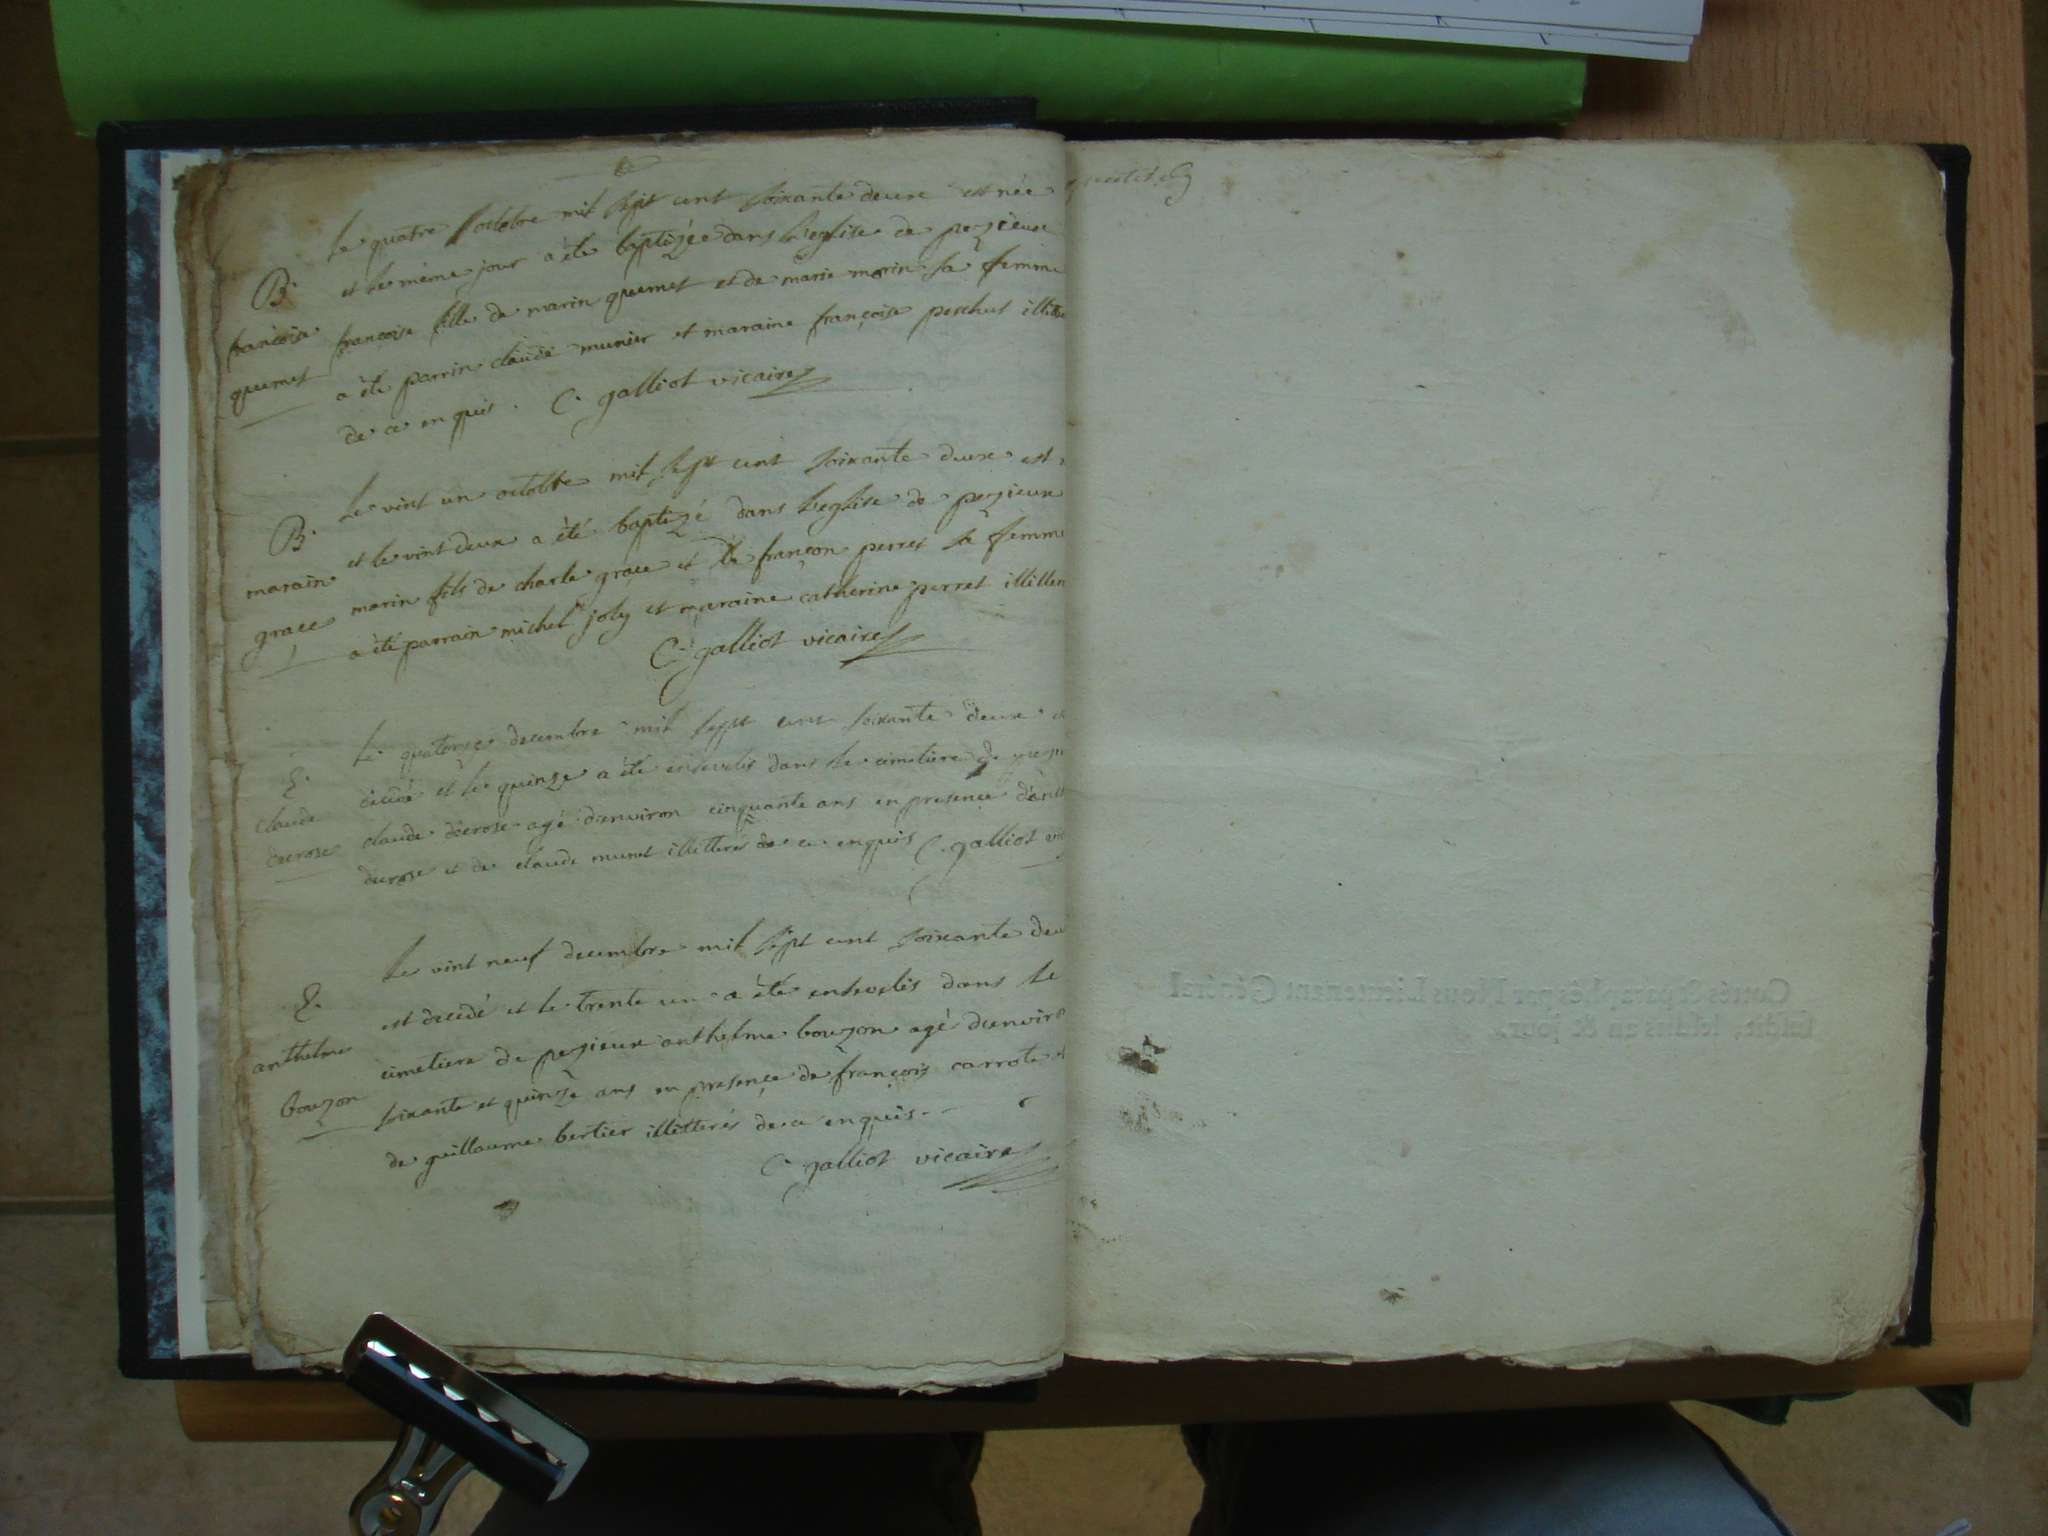 le quatre octobre mil sept cent soixante deux est née
B. et le même jour a été baptizée dans l'eglise de pezieux
francoise françoise fille de marin quemet et de marie morin sa femme
quemet a été parrin claude munier et maraine françoise perchet
de ce enquis. C. galliot vicaire
le vint un octobre mil sept cent soixante deux est
B. et le vint deux a été baptizé dans l'eglise de pezieux
marain marin fils de charle grace et de françon perret sa femme
grace a été parrain michel joly et maraine catherine perret
C. galliot vicaire
Le quatorze decembre mil sept cent soixante deux
E. décédé et le quinze a été ensevelis dans le cimetiere de
claude claude decrose agé d'environ cinquante ans en presence
decrose decrose et de claude munet illitterés de ce enquis C. galliot
le vint neuf decembre mil sept cent soixante
E. est décédé et le trente un a été ensevelis dans le
anthelme cimetiere de pezieux anthelme bouzon agé d'enviro
bouzon soixante et quinze ans en presençe de françois carrote
de guillaume bertier illitterés de ce enquis
C. galliot vicaire
Cottés & paraphés par Nous Lieutenant Général
susdit, lesdits an & jour.